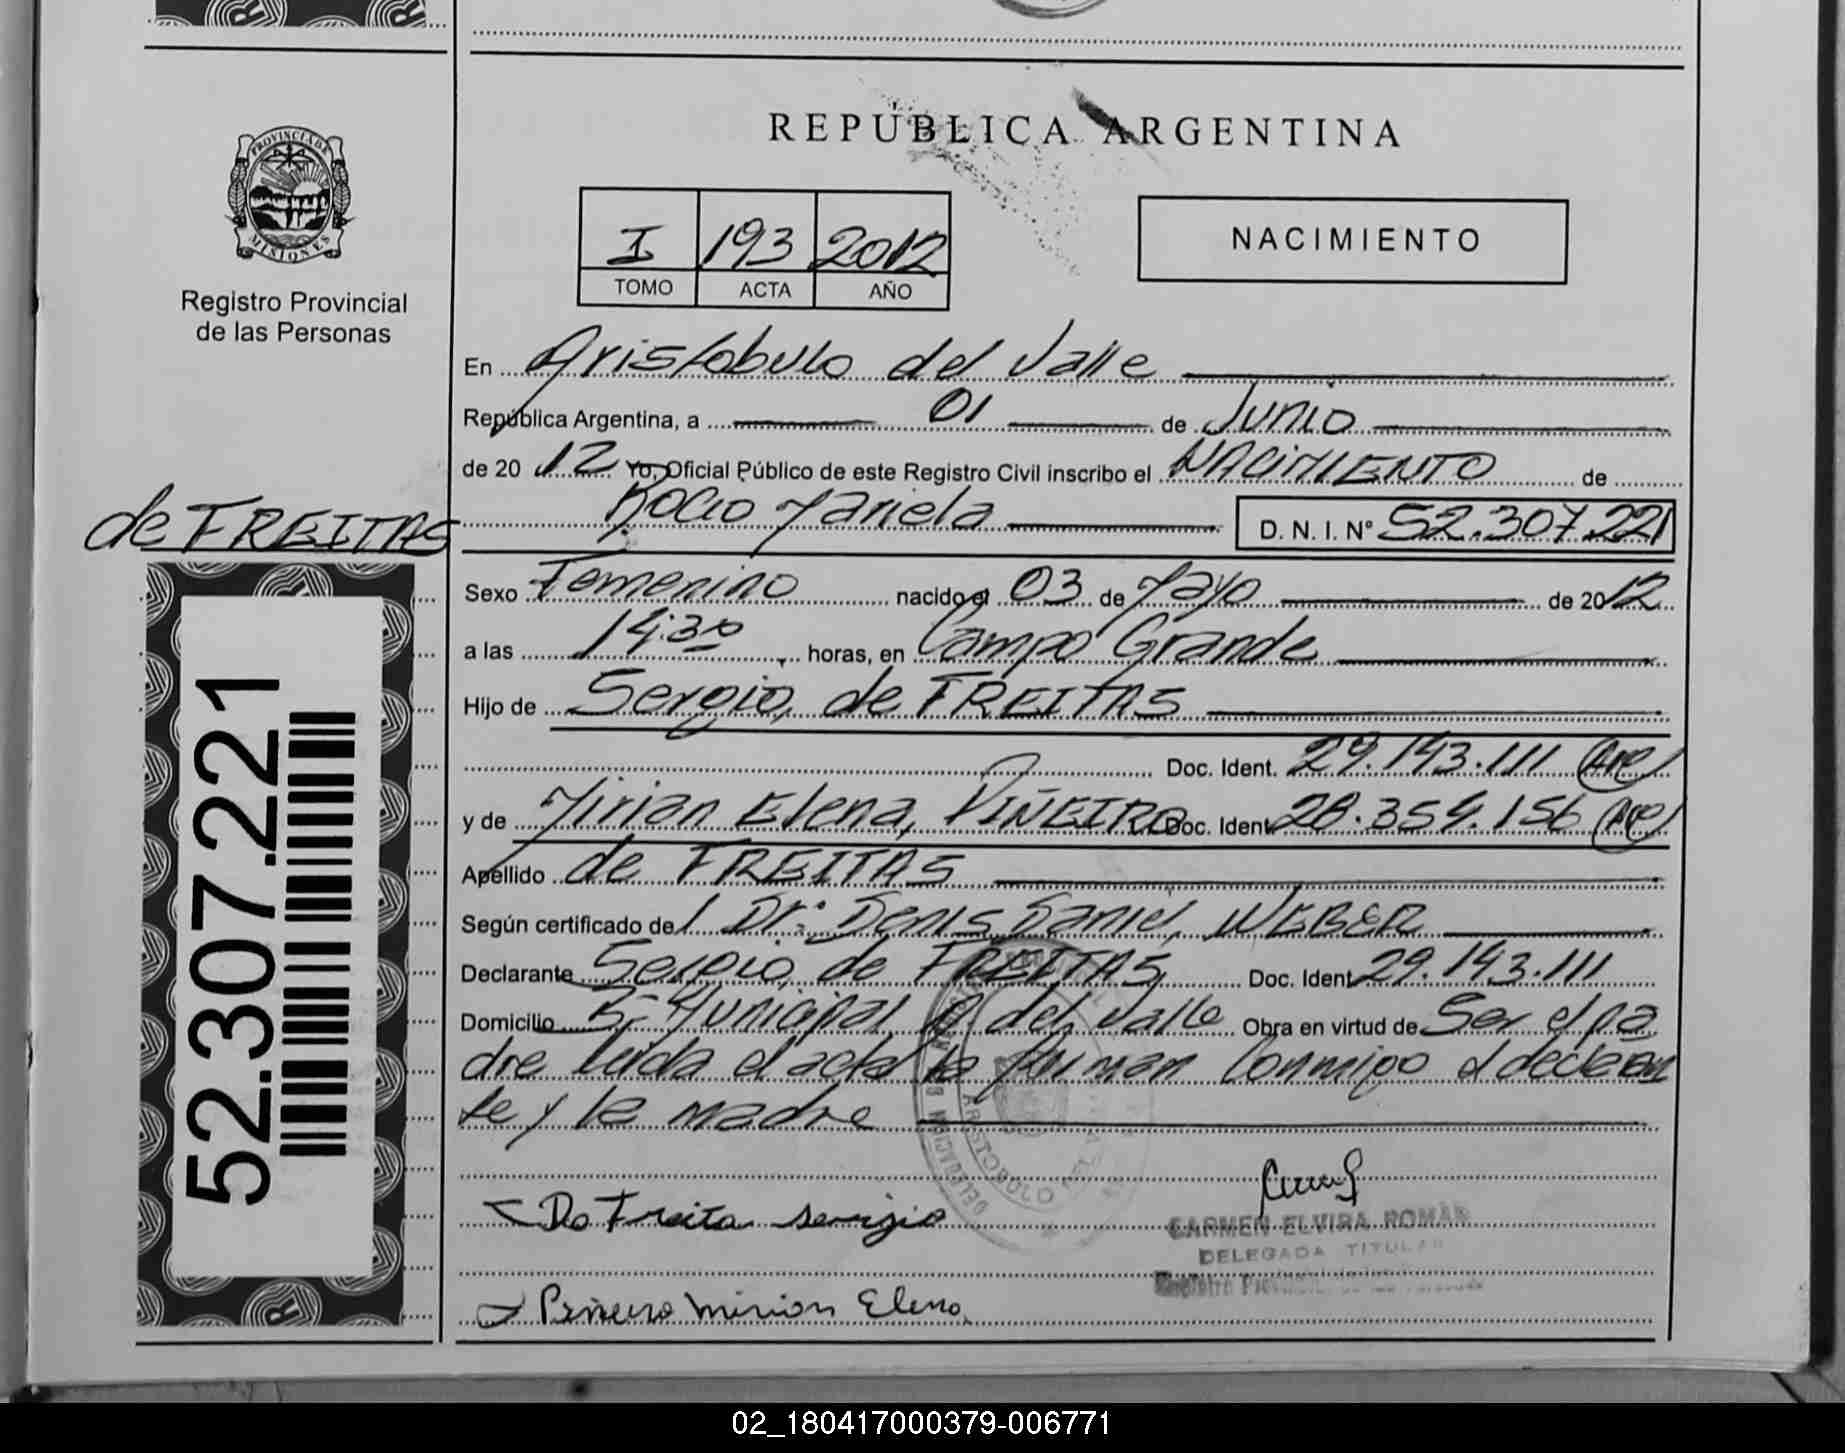 REPÚBLICA ARGENTINA
PROVINCIA DE
MISIONES
Registro Provincial
de las Personas
I 193 2012
TOMO ACTA AÑO
NACIMIENTO
En Aristobulo del Valle
República Argentina, a 01 de Junio
de 20 12 Yo, Oficial Público de este Registro Civil inscribo el NACIMIENTO de
de FREITAS
Rocio Mariela D. N. I. Nº 52.307.221
Sexo Femenino nacido el 03 de Mayo de 20 12
a las 14:30 horas, en Campo Grande
Hijo de Sergio, de FREITAS
Doc. Ident. 29.143.111 (Arg)
y de Mirian Elena, PIÑEIRO Doc. Ident. 28.354.156 (Arg)
Apellido de FREITAS
Según certificado de l Dr: Denis Daniel, WEBER
Declarante Sergio, de FREITAS, Doc. Ident. 29.143.111
Domicilio B- Municipal A del Valle Obra en virtud de Ser el pa
dre leida el acta la firman conmigo el declaran
te y la madre
52.307.221
De Freita sergio
CARMEN ELVIRA ROMAN
DELEGADA TITULAR
Registro Provincial de las Personas
Piñeiro Mirian Elena
02_180417000379-006771